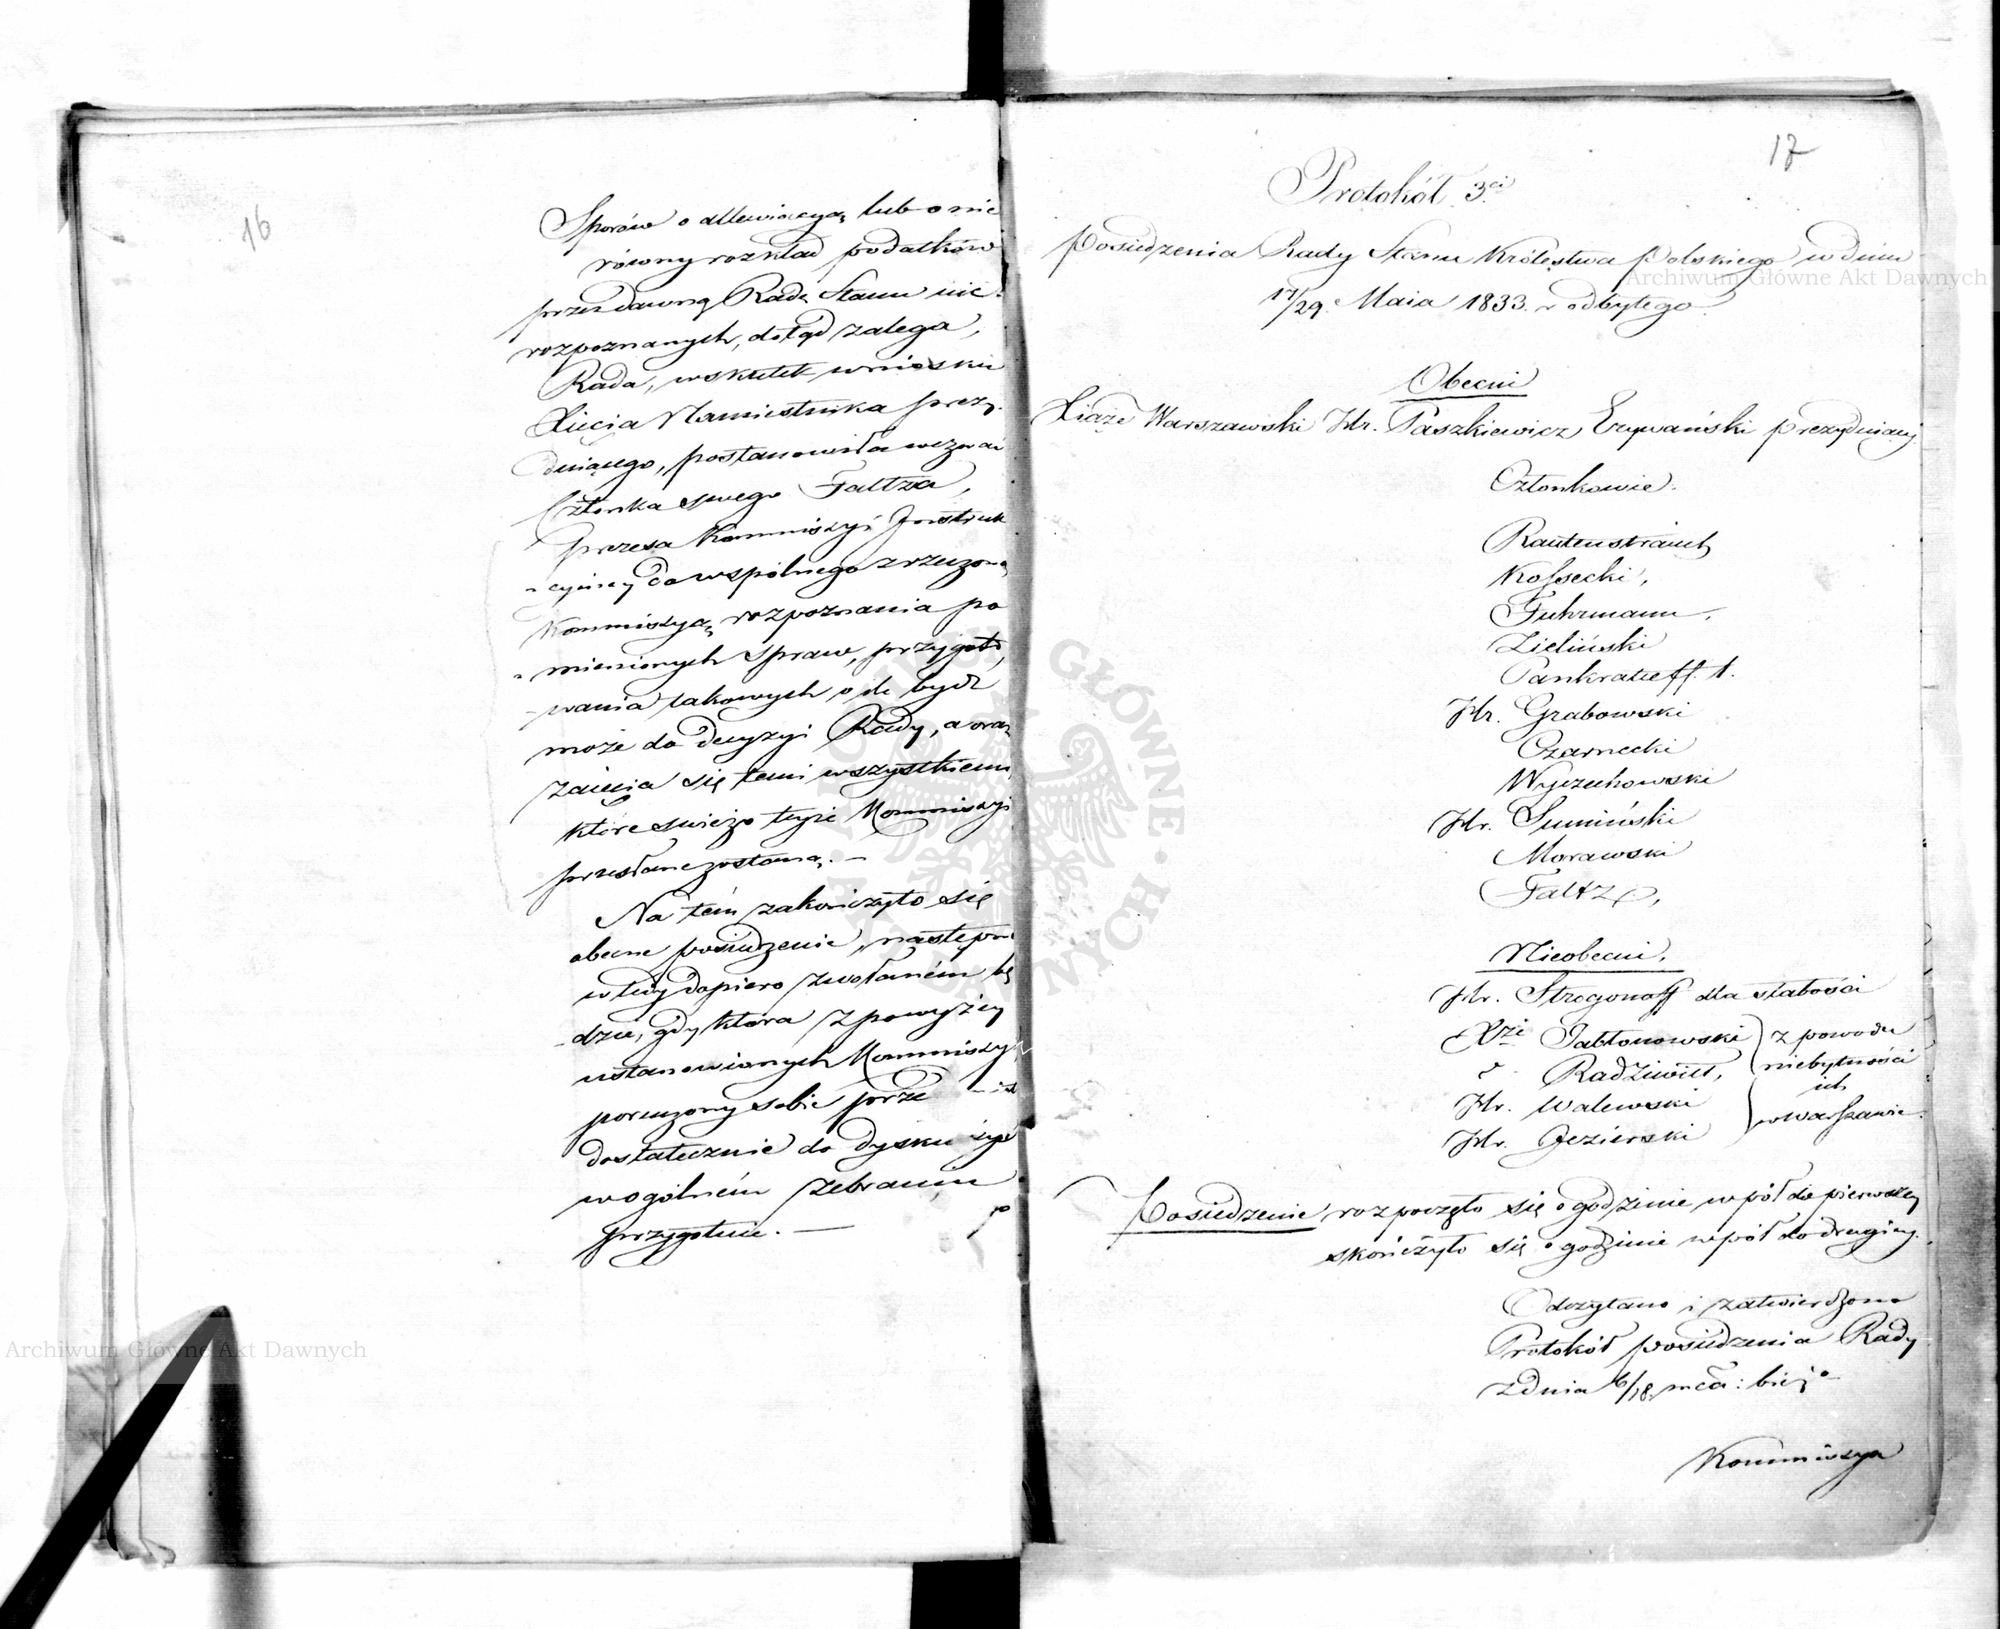 16
Sporów o allewiacyą lub o nie
równy rozkład podatków
przez dawną Radę Stanu nie-
rozpoznanych, dotąd zalega,
Rada, wskutek wniosku
Xięcia Namiestnika prezy-
duiącego, postanowiła wezwać
Członka swego Faltza,
prezesa Kommissyi Instruk
cyiney do wspólnego z rzeczoną
Kommissyą rozpoznania po
mienionych spraw, przygoto
wania takowych o ile bydź
może do decyzyi Rady, a oraz
zaięcia się temi wszystkiemi,
które świeżo teyże Kommissyi
przesłane zostaną. —
Na tém zakończyło się
obecne posiedzenie, następne
wtedy dopiero zwołaném bę
dzie, gdy która z powyżey
ustanowionych Kommissyi
poruczony sobie
dostatecznie do dysku
w ogólném zebraniu
przygotuie. —
17
Protokół 3ci
Posiedzenia Rady Stanu Królestwa Polskiego w dniu
17/29 Maia 1833 r. odbytego.
Obecni
Xiąże Warszawski Hr. Paszkiewicz Erywański prezyduiący
Członkowie.
Rautenstrauch
Kossecki,
Fuhrmann,
Zieliński
Pankratieff 1.
Hr. Grabowski
Czarnecki
Wyczechowski
Hr. Sumiński
Morawski
Faltz,
Nieobecni.
Hr. Strogonoff dla słabości
Xże Jabłonowski z powodu
" Radziwiłł, niebytności
Hr. Walewski ich
Hr. Jezierski w Warszawie.
Posiedzenie rozpoczęło się o godzinie wpół do pierwszey
skończyło się o godzinie wpół do drugiey.
Odczytano i zatwierdzono
Protokół posiedzenia Rady
z dnia 6/18 mca: bież.
Kommissya
Archiwum Główne Akt Dawnych
Archiwum Główne Akt Dawnych